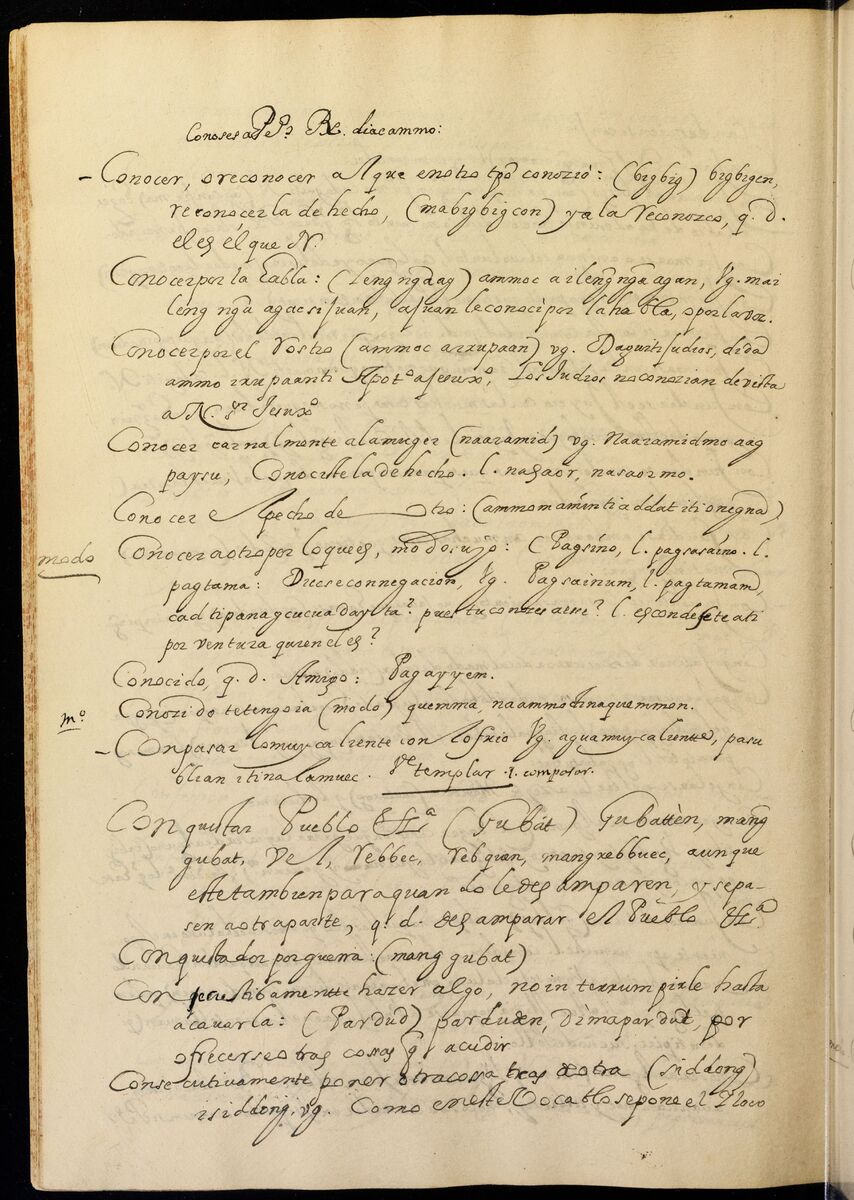 Conoses a Pe Po? Re. diac ammo:
– Conocer, o reconocer al que en otro tpo conozió: (bigbig) bigbigen,
reconocerla de hecho, (mabigbigcon) ya la Reconozco, q. d.
el es él que N.
Conocer por la Habla: (Leng ngaag) ammoc a ileng nga agan, Vg. mai
leng nga agac si Juan, a Juan le conoci por la habla, o por la voz.
Conocer por el Rostro (ammoc a irupaan) vg. Dagiti Judios, di da
ammo irupaan ti Apo to a Jesuxo, Los Judios no conozian de vista
a N. Sr Jesuxo
Conocer carnalmente a la muger (naaramid) vg. Naaramidmo aag
paysu, Conocistela de hecho. l. nasaor, nasaormo.
Conocer el pecho de otro: (ammom amin ti addat iti onegna)
modo
Conocer a otro por lo que es, modo suyo: (Pagsino, l. pagsasaino. l.
pagtama: Dicese con negacion, Vg. Pagsainum, l. pagtamam,
cad ti panagcucuadayta? pues tu conoces a ese? l. escondesete a ti
por ventura quien el es?
Conocido, q. d. Amigo: Pagayyem.
mo.
Conozido te tengo ia (modo) quemma, naammo chinaquemmon.
– Conpasar lo muy caliente con lo frio Vg. agua muy caliente, pasu
blian itinalamuec. Ve templar. l. composar.
Conquistar Pueblo &a (Gubát) Gubattèn, mang
gubat, Vel, Rebbec, Rebquen, mangrebbuec, aunque
este tambien para quando le desamparen, y se pa-
sen a otra parte, q. d. desamparar el Pueblo &a
Conquistador por guerra: (mang gubat)
Consecutibamentte hazer algo, no interrumpirle hasta
acavarla: (Pardud) parduden, Dimapardut, por
ofrecerse otras cosas q̃ acudir
Consecutivamente poner otra cossa tras de otra (siddong)
isiddong, vg. Como en este Vocablo se pone el Yloco